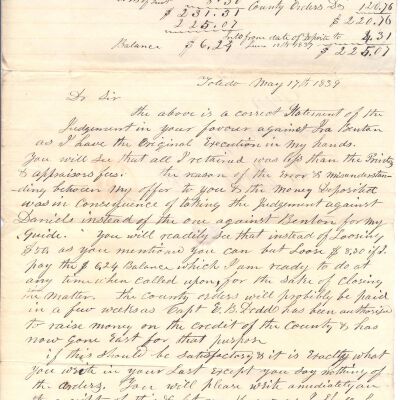 County Orders Ds 126.76
$ 231.31 $ 220.76
225.07 Int from date of Deposite to 4.31
Balance $ 6.24 June 10th 1839 $ 225.07
Toledo May 17th 1839
Dr Sir
the above is a correct Statement of the
Judgement in your favour against Ira Bentan
as I have the Original Execution in my hands.
You will see that all I retained was less than the
& appraisors fees. the reason of the Error & misunderstan
ding between my offer to you & the money Deposited
was in Consequence of taking the Judgement against
Daniels instead of the one against Benton for my
Guide. You will readily See that instead of Loosing
as you mentioned you can but Loose $ 8,30 if I
pay the $ 6,24 Balance which I am ready to do at
any time when called upon, for the Sake of Closing
the matter. the County orders will probibly be paid
in a few weeks as Capt E. B. Dodd has been authorize
to raise money on the credit of the County & has
now Gone East for that purpose.
if this should be satisfactory & it is Exactly what
you write in your Last Except you Say nothing of
the orders. You will please write amediately on